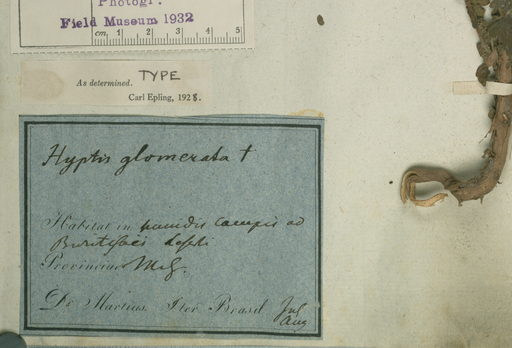 Photogr.
Field Museum 1932
cm 1 2 3 4 5
As determined. TYPE
Carl Epling, 1928.
Hyptis glomerata †
Habitat in humidis campis ad
Provinciae M.G.
Dr Martius. Iter Brasil Jul
Aug